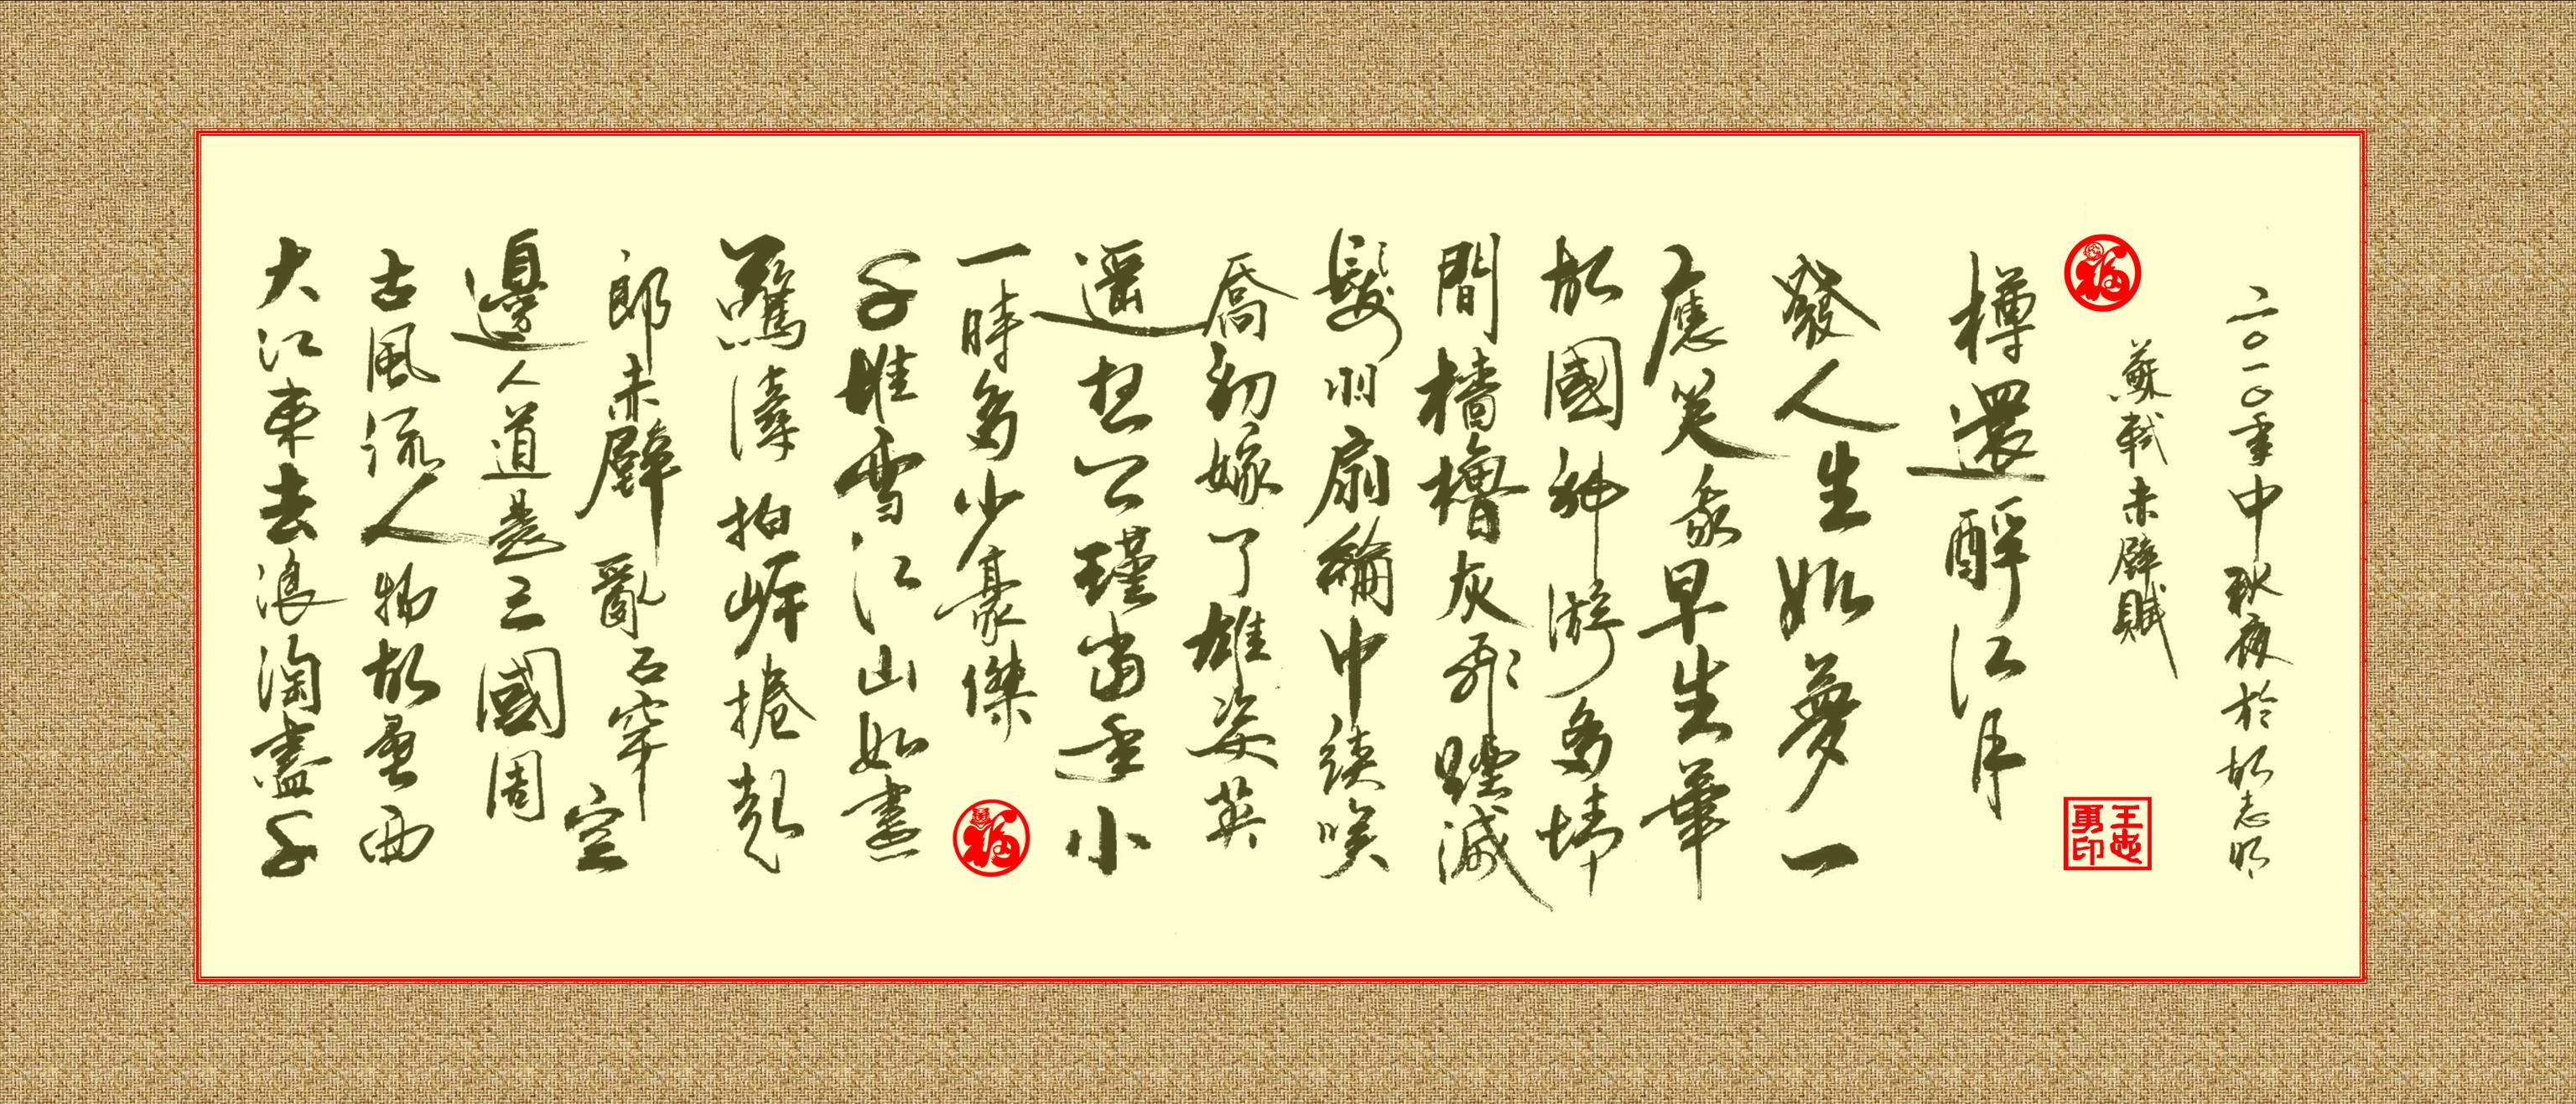 大江東去浪淘盡千
古風流人物故壘西
邊人道是三國周
郎赤壁亂石穿空
驚濤拍岸捲起
千堆雪江山如畫
一時多少豪傑
福
遥想公瑾當年小
喬初嫁了雄姿英
髮羽扇綸巾談笑
間檣櫓灰飛煙滅
故國神游多情
應笑我早生華
發人生如夢一
樽還酹江月
福
蘇軾赤壁賦
王忠勇印
二〇一〇年中秋夜於胡志明